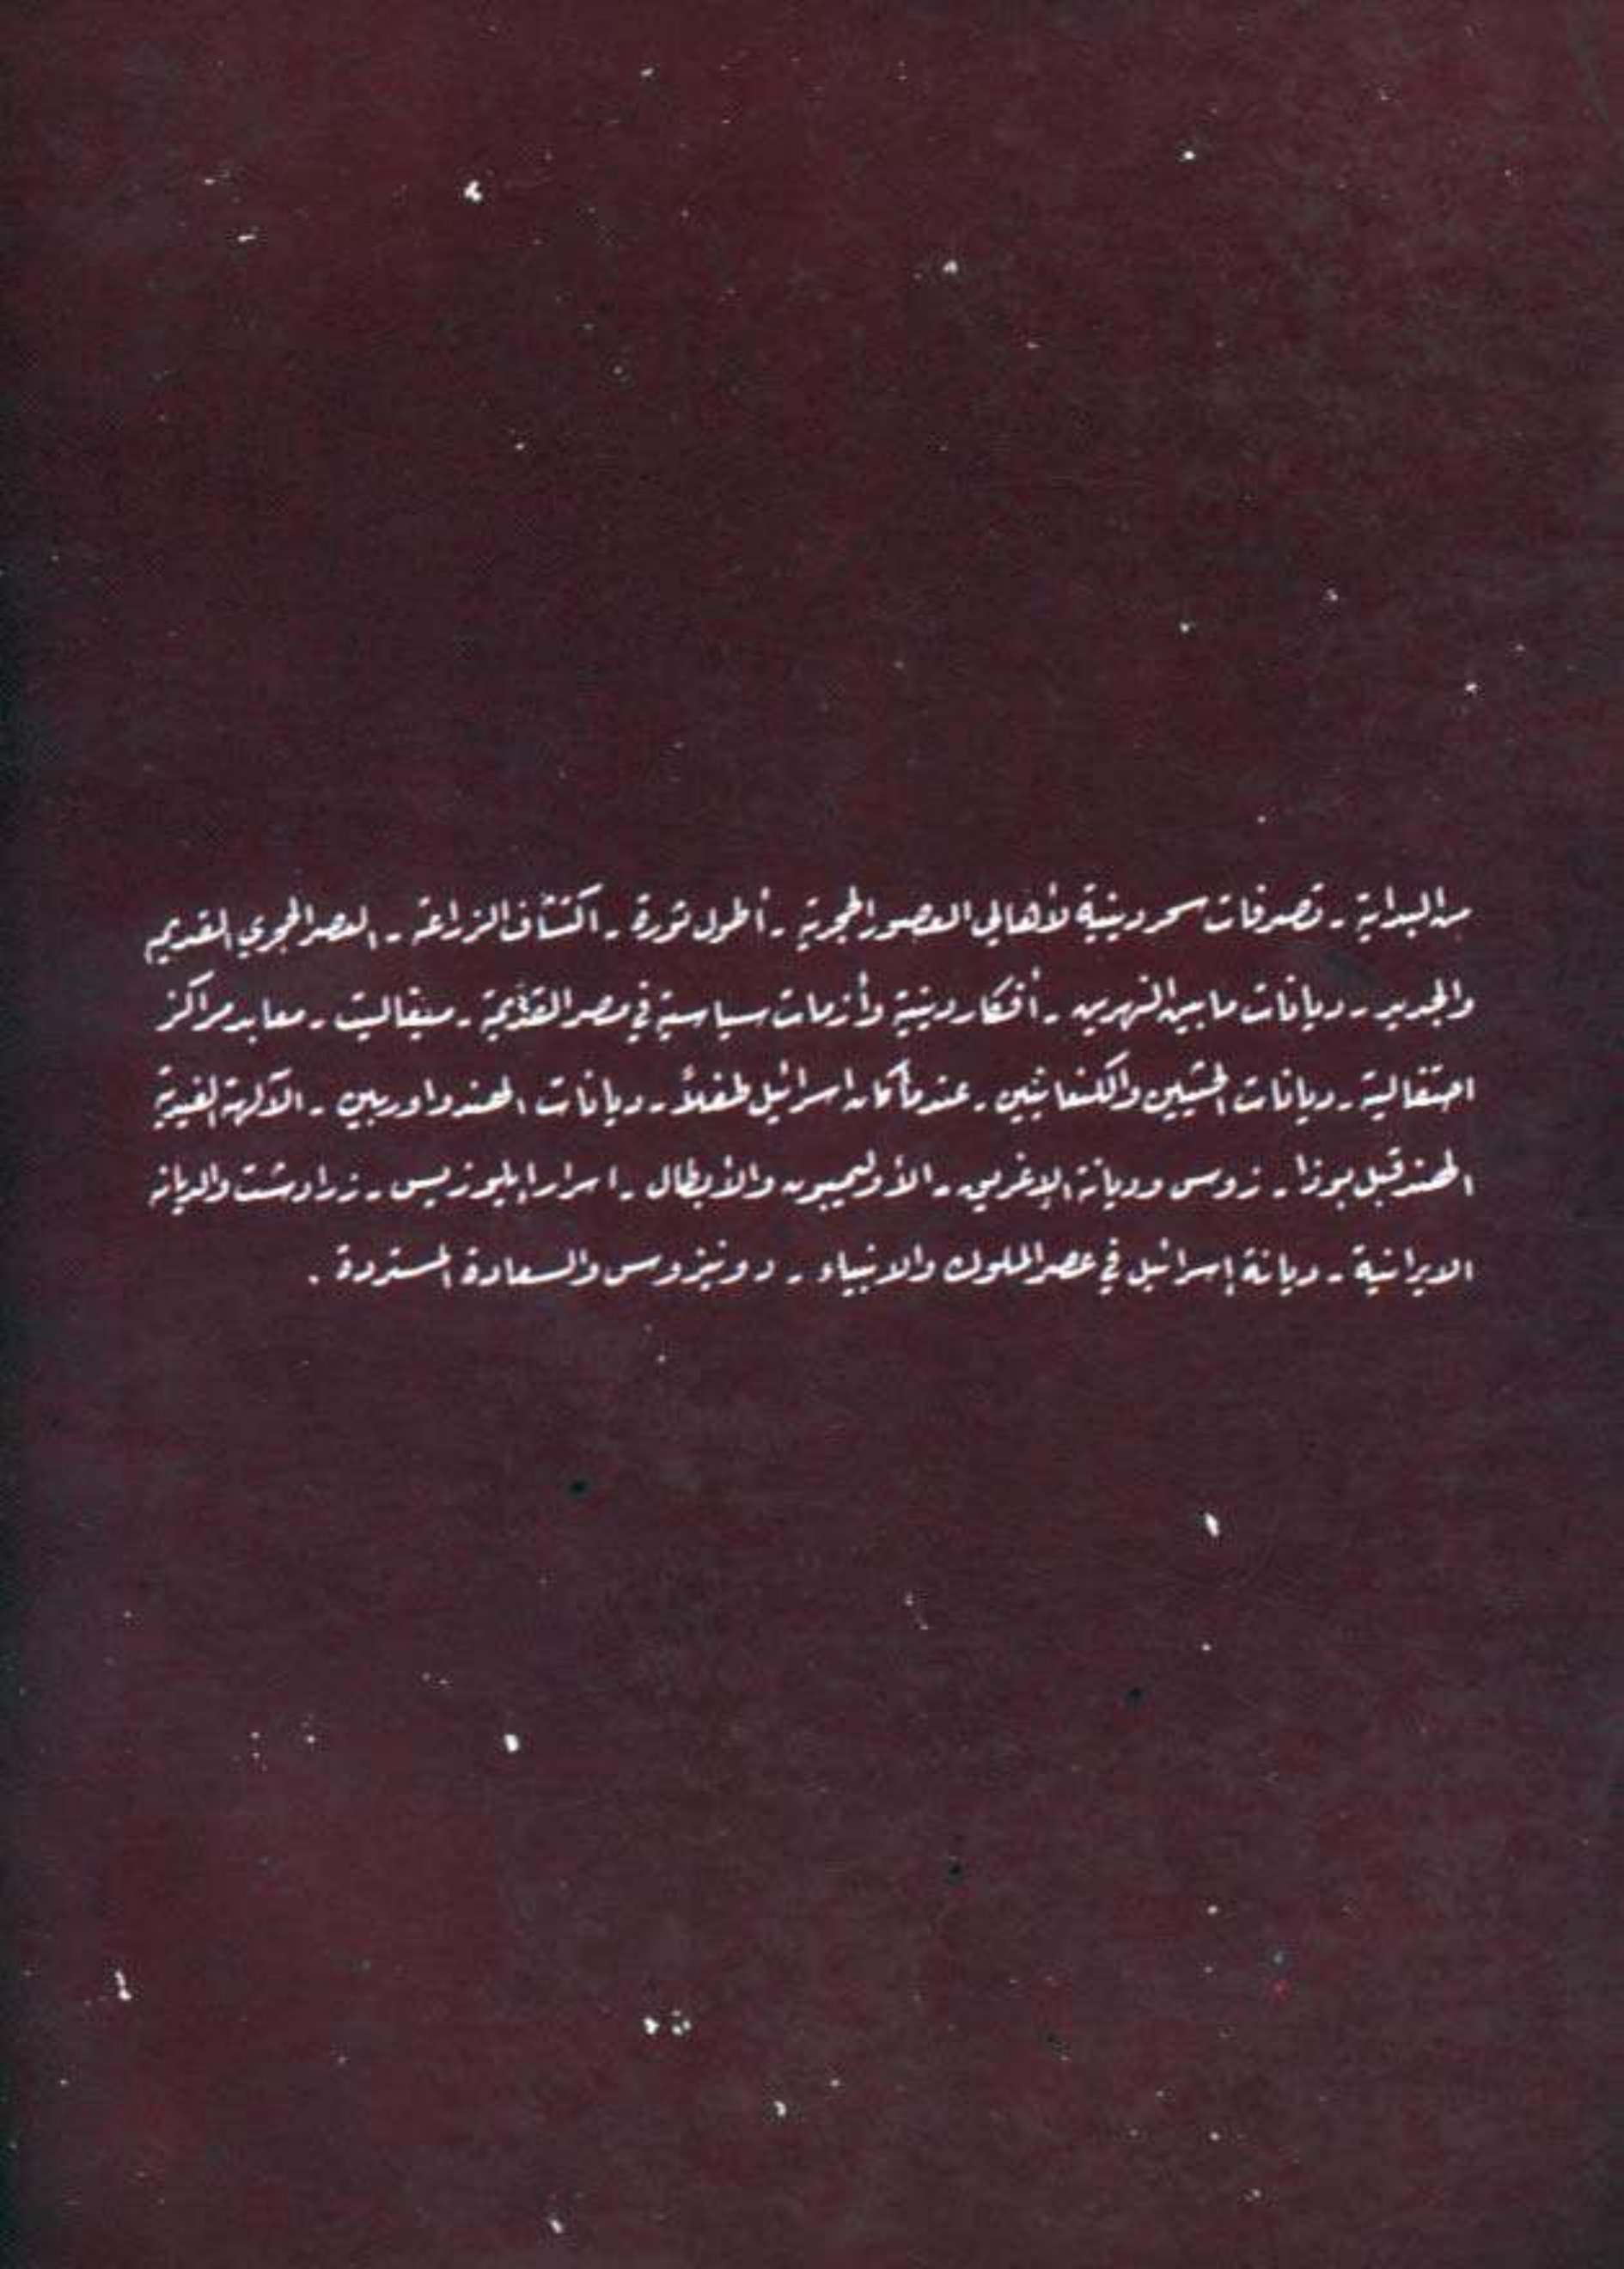 من البداية - تصرفات سحر دينية لأهالي العصور الحجرية - أطول ثورة - اكتشاف الزراعة - العصر الحجري القديم
والجديد - ديانات ما بين النهرين - أفكار دينية وأزمات سياسية في مصر القديمة - ميغاليت - معابد مراكز
احتفالية - ديانات الحثيين والكنعانيين - عندما كان اسرائيل طفلاً - ديانات الهندو اوربيين - الآلهة الفيدية
الهند قبل بوذا - زوس وديانة الإغريق - الأولمبيون والأبطال - اسرار ايليوزيس - زرادشت والديانة
الايرانية - ديانة إسرائيل في عصر الملوك والانبياء - دونيزوس والسعادة المستردة .